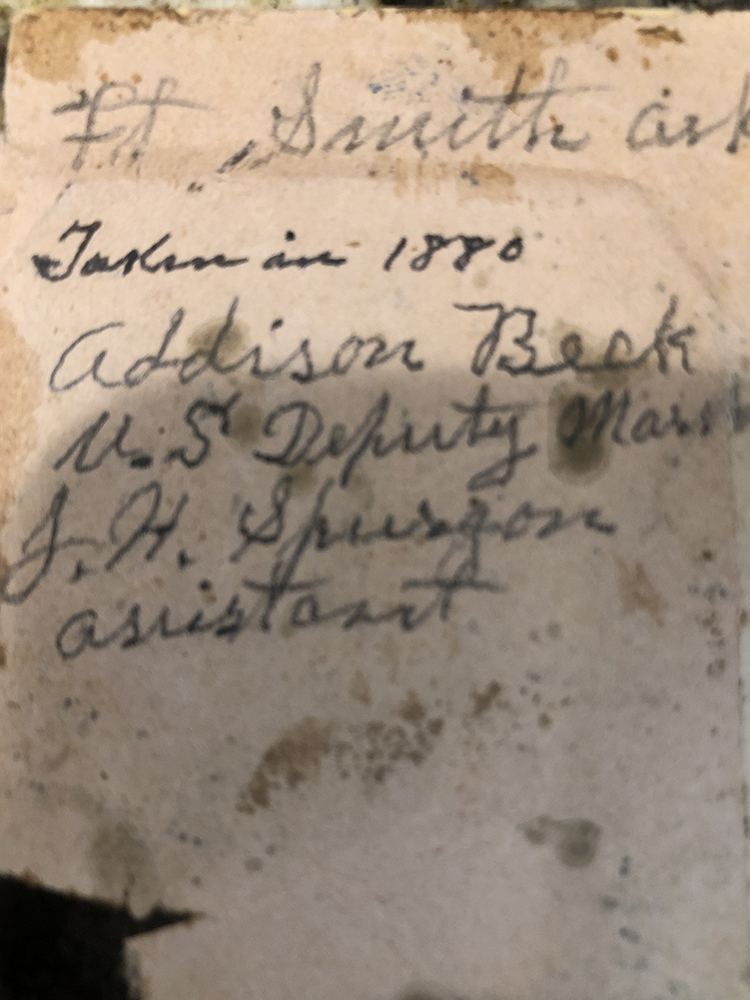 Ft Smith ark
Taken in 1880
Addison Beck
U.S Deputy Marsh
J.H. Spurgon
assistant